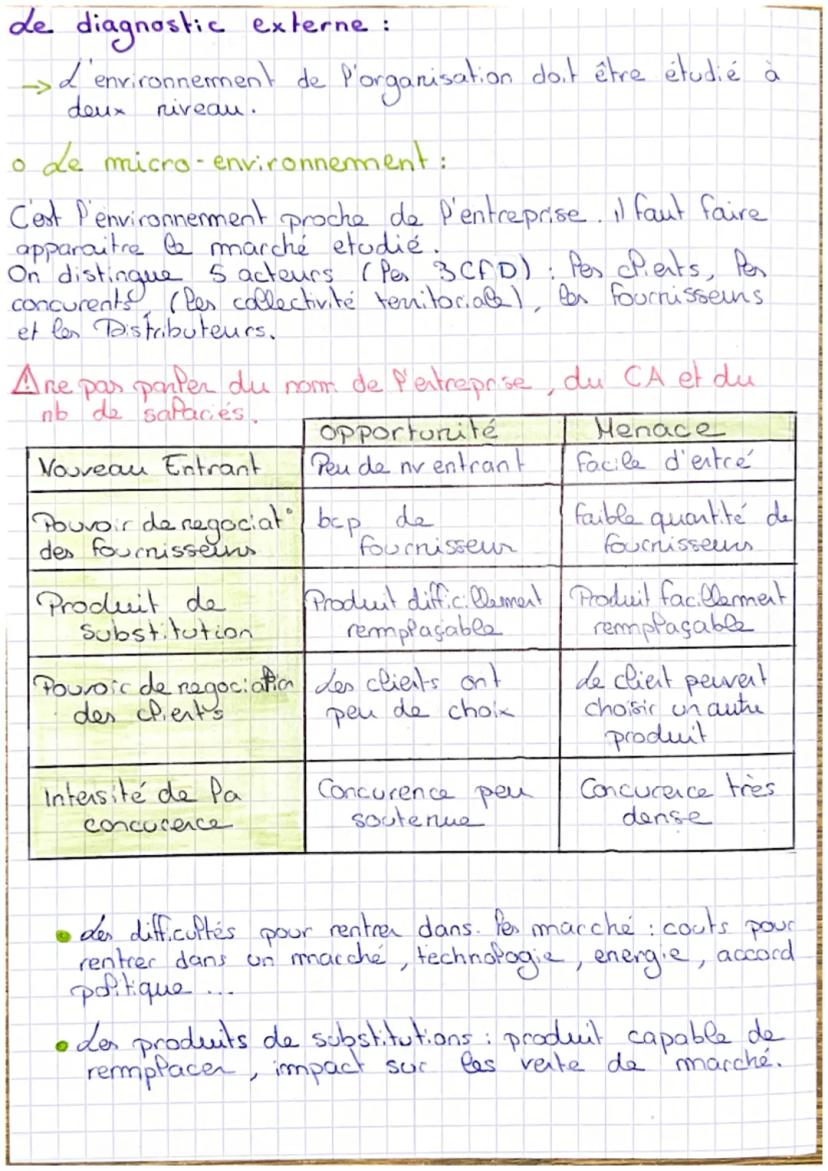 Le diagnostic externe :
→ L'environnement de l'organisation doit être étudié à
deux niveau.
o Le micro-environnement :
C'est l'environnement proche de l'entreprise. il faut faire
apparaitre le marché etudié.
On distingue 5 acteurs (les 3CFD) : les clients, les
concurents, (les collectivité territoriale), les fournisseurs
et les Distributeurs.
⚠ ne pas parler du nom de l'entreprise, du CA et du
nb de salariés.
opportunité Menace
Nouveau Entrant Peu de nv entrant Facile d'entré
Pouvoir de negociat° bcp de faible quantité de
des fournisseurs fournisseur fournisseurs
Produit de Produit difficillement Produit facillement
substitution remplaçable remplaçable
Pouvoir de negociation Les clients ont Le client peuvent
des clients peu de choix choisir un autre
produit
Intensité de la Concurence peu Concurence très
concurence soutenue dense
• Les difficultés pour rentrer dans les marché : couts pour
rentrer dans un marché, technologie, energie, accord
politique ...
• Les produits de substitutions : produit capable de
remplacer, impact sur les vente de marché.